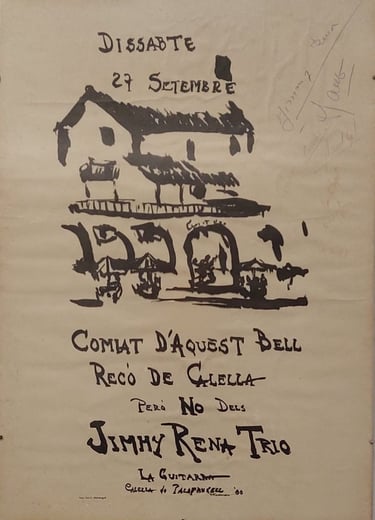 DISSABTE
27 SETEMBRE
COMIAT D'AQUEST BELL
RECÓ DE CALELLA
PERÒ NO DELS
JIMMY RENA TRIO
LA GUITARRA
CALELLA de PALAFRUGELL '80